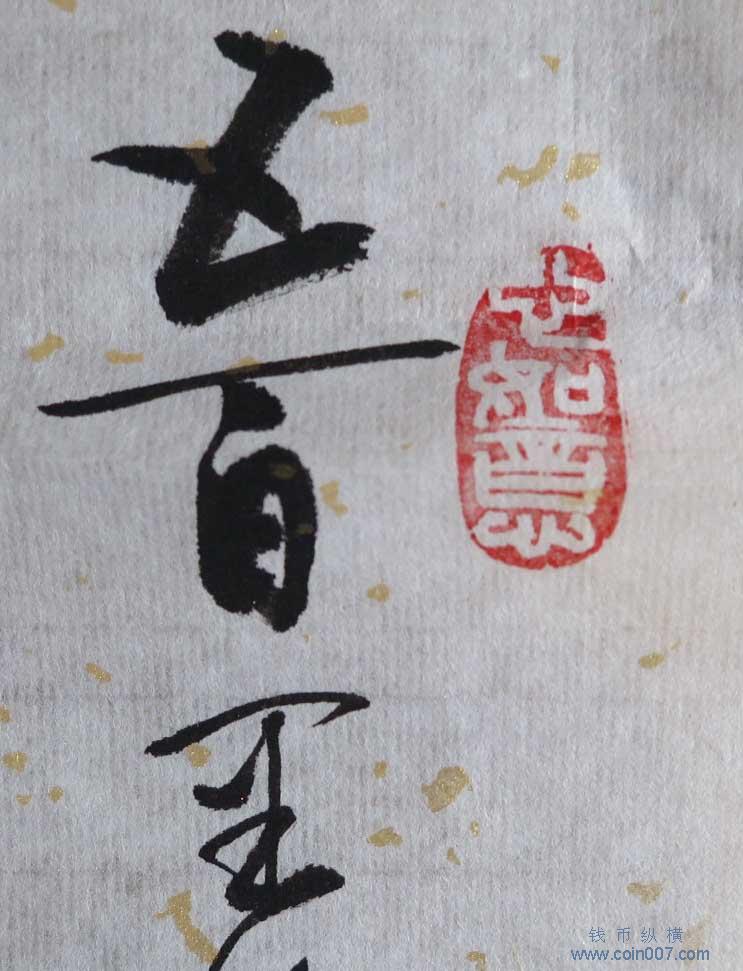 五百里
钱币纵横
www.coin007.com